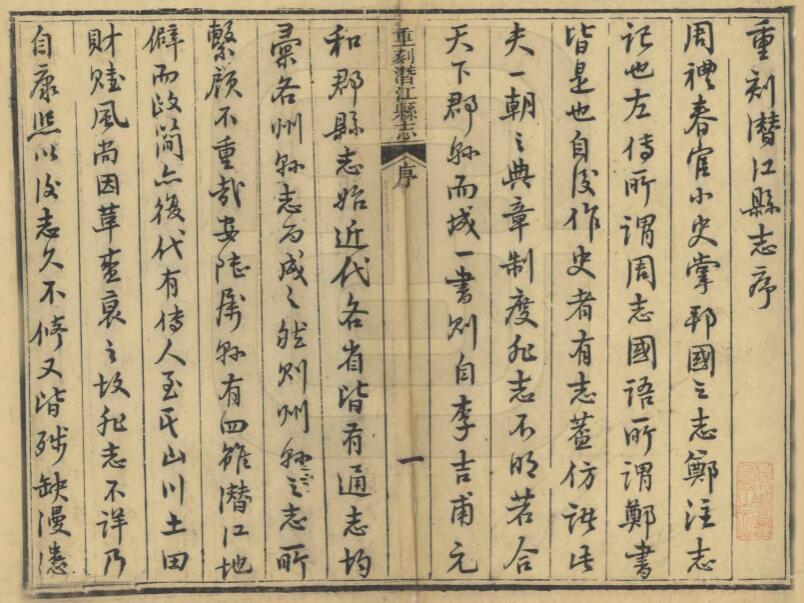 重刻潛江縣志序
周禮春官小史掌邦國之志鄭注志
記也左傳所謂周志國語所謂鄭書
皆是也自後作史者有志蓋仿諸此
夫一朝之典章制度非志不明若合
天下郡縣而成一書則自李吉甫元
重刻潛江縣志
序
一
和郡縣志始近代各省皆有通志均
彙各州縣志而成之然則州縣之志所
繫顧不重哉安陸屬縣有四雖潛江地
僻而政簡然後代有傳人至其山川土田
財賦風尚因革盛衰之故非志不詳乃
自康熙以後志久不修又皆殘缺漫漶